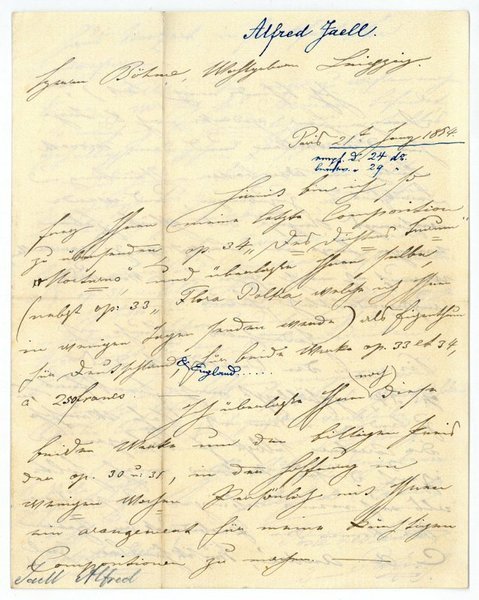 Alfred Jaell.
Herrn Böhme, Wohlgeboren Leipzig
Paris 21t 1854.
empf. d. 24 ds.
beantw. " 29 "
Hiermit bin ich so
frey Ihnen meine letzte Composition
zu übersenden, op 34, "Des Dichters Traum"
"Notturno", und überlaße Ihnen selbe
(nebst op: 33, Flora Polka, welche ich Ihnen
in wenigen Tagen senden werde) als Eigenthum
für Deutschland & England...... für beide Werke op. 33 et 34,
à 250 francs.
Ich überlaße Ihnen (noch) diese
beiden Werke um den billigen Preis
der op. 30 u. 31, in der Hoffnung in
wenigen Wochen Persönlich mit Ihnen
ein arangement für meine künftigen
Compositionen zu machen.
Jaell Alfred